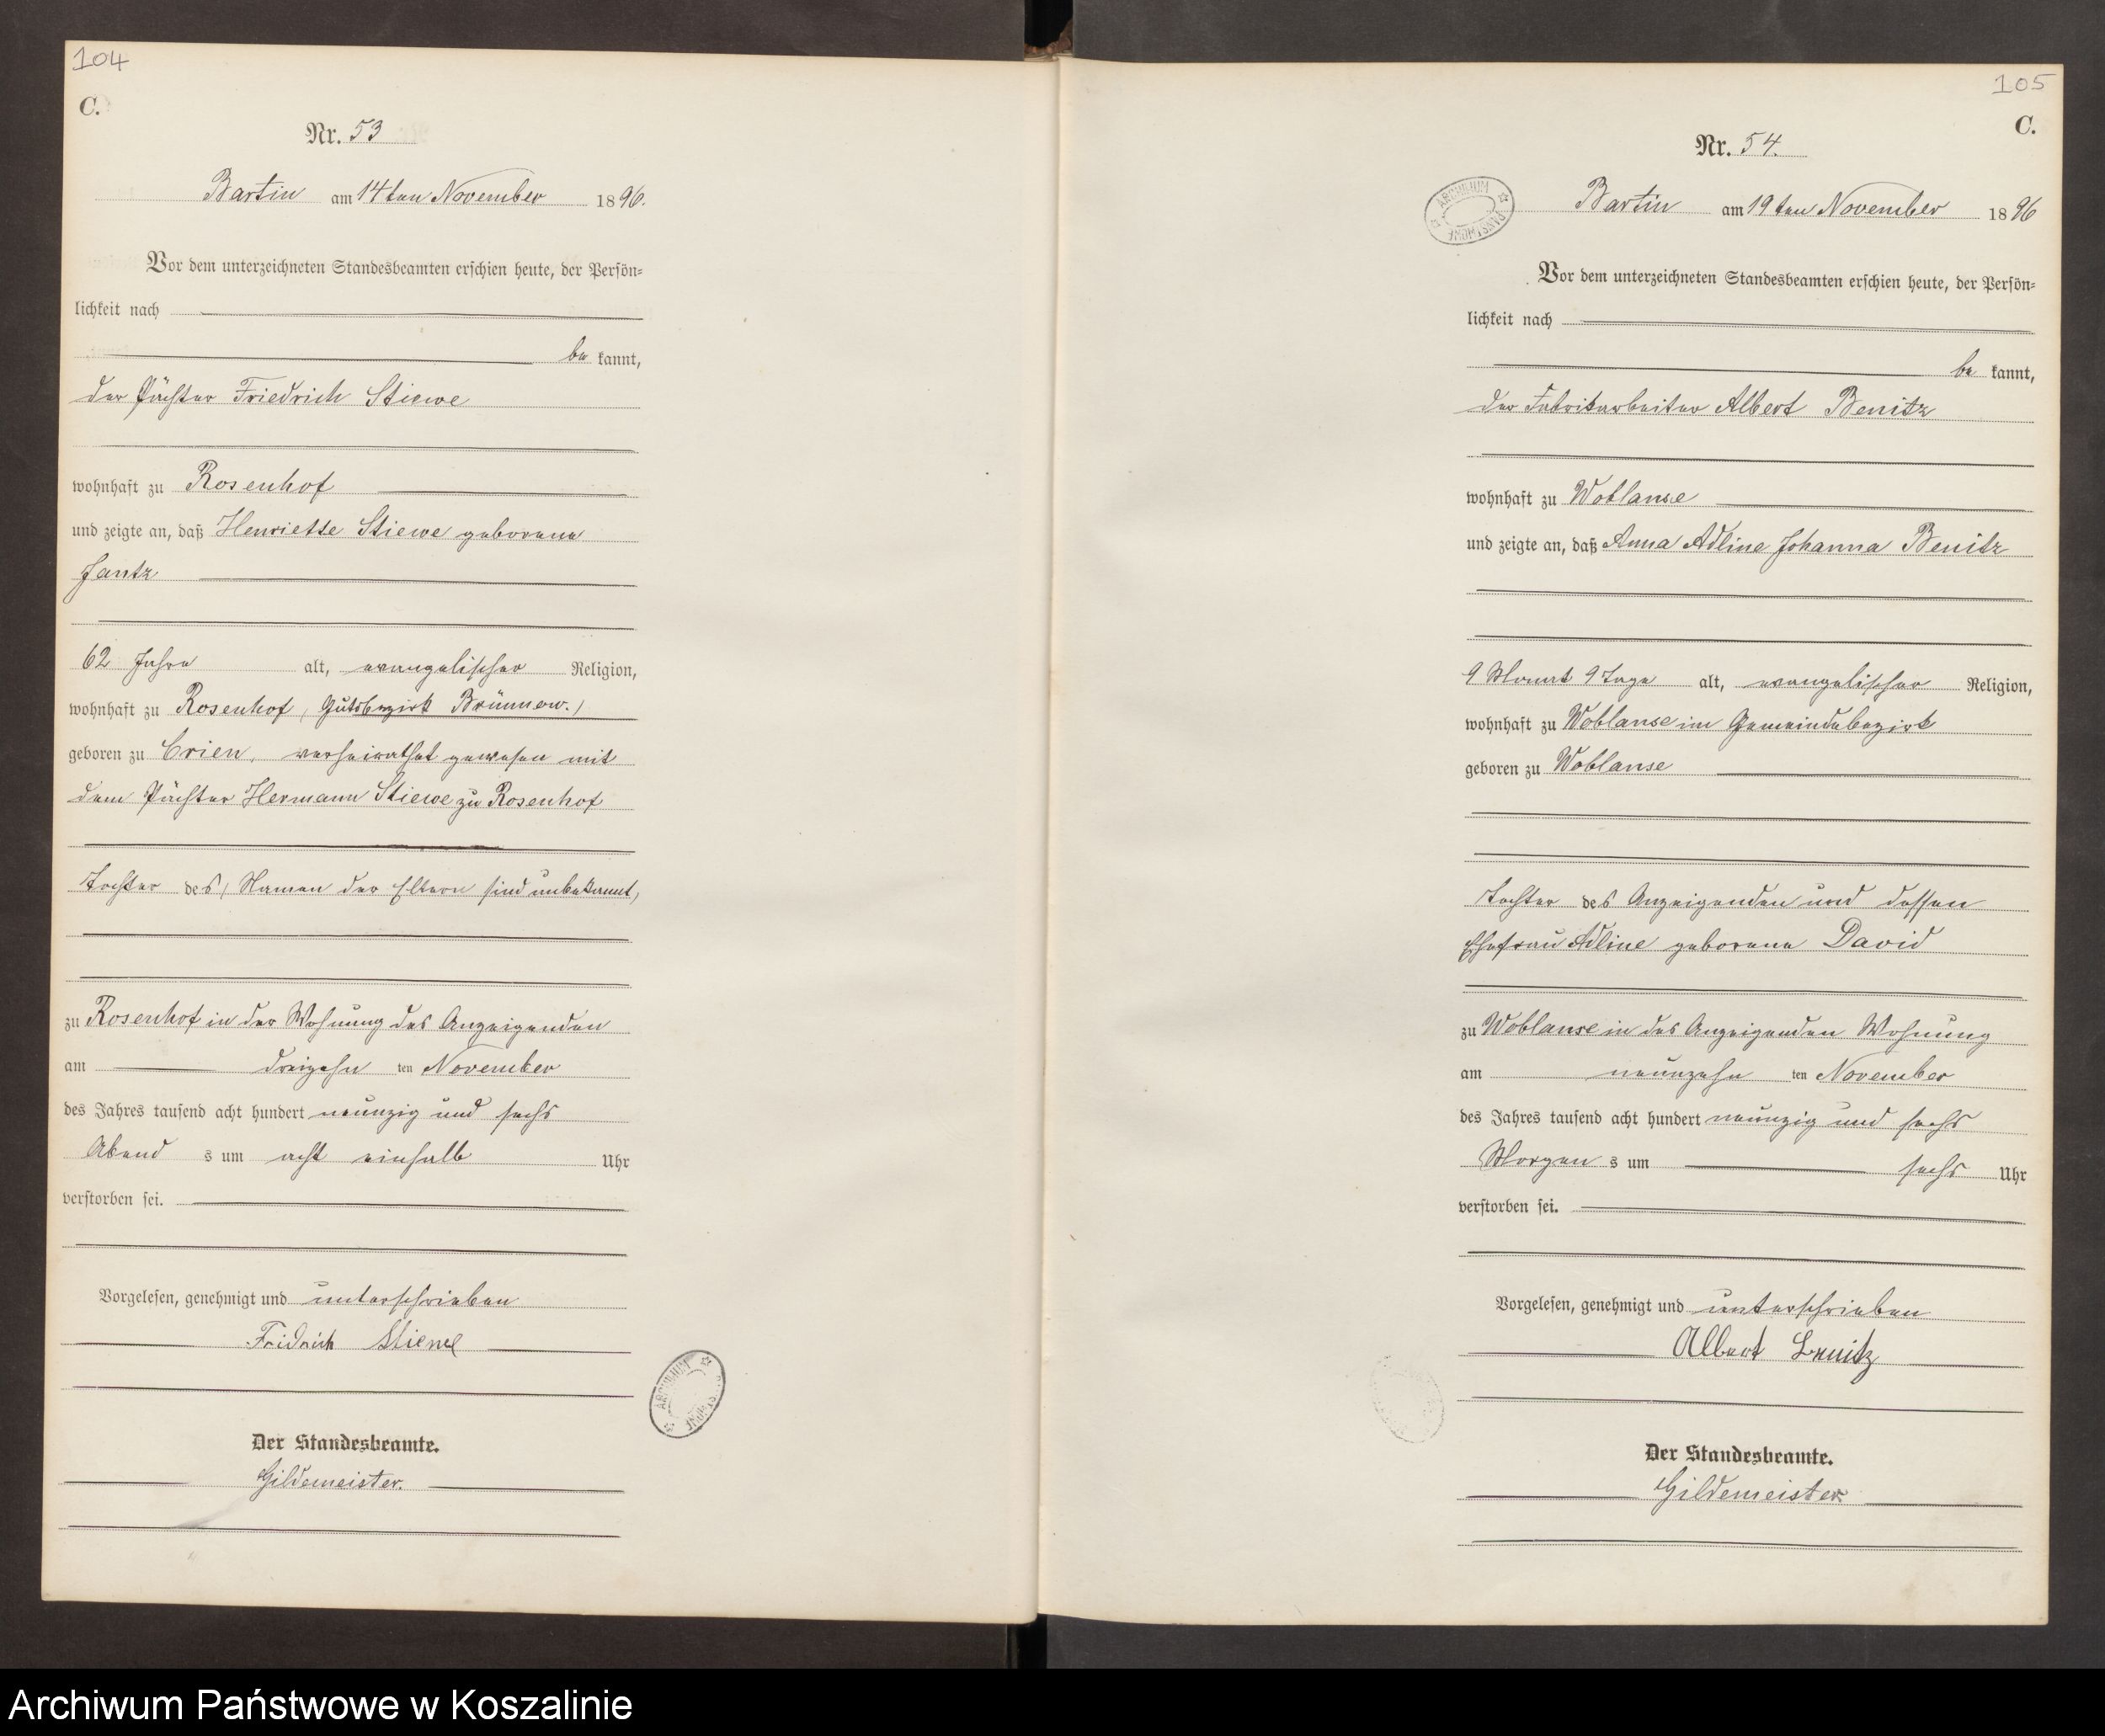 104
C.
Nr. 53
Bartin am 14ten November 1896.
Vor dem unterzeichneten Standesbeamten erschien heute, der Persön=
lichkeit nach
be kannt,
der Pächter Friedrich Stiewe
wohnhaft zu Rosenhof
und zeigte an, daß Henriette Stiewe geborene
Jantz
62 Jahre alt, evangelischer Religion,
wohnhaft zu Rosenhof, (Gutsbezirk Brünnow.)
geboren zu Crien, verheirathet gewesen mit
dem Pächter Hermann Stiewe zu Rosenhof
Tochter des (Namen der Eltern sind unbekannt)
zu Rosenhof in der Wohnung des Anzeigenden
am dreizehn ten November
des Jahres tausend acht hundert neunzig und sechs
Abend s um acht einhalb Uhr
verstorben sei.
Vorgelesen, genehmigt und unterschrieben
Fridrich Stiewe
Der Standesbeamte.
Gildemeister.
ARCHIWUM PAŃSTWOWE
105
C.
Nr. 54.
ARCHIWUM PAŃSTWOWE
Bartin am 19ten November 1896
Vor dem unterzeichneten Standesbeamten erschien heute, der Persön=
lichkeit nach
be kannt,
der Fabrikarbeiter Albert Benitz
wohnhaft zu Woblanse
und zeigte an, daß Anna Adline Johanna Benitz
9 Monat 9 Tage alt, evangelischer Religion,
wohnhaft zu Woblanse im Gemeindebezirk
geboren zu Woblanse
Tochter des Anzeigenden und dessen
Ehefrau Adline geborene David
zu Woblanse in des Anzeigenden Wohnung
am neunzehn ten November
des Jahres tausend acht hundert neunzig und sechs
Morgen s um sechs Uhr
verstorben sei.
Vorgelesen, genehmigt und unterschrieben
Albert Benitz
Der Standesbeamte.
Gildemeister
Archiwum Państwowe w Koszalinie